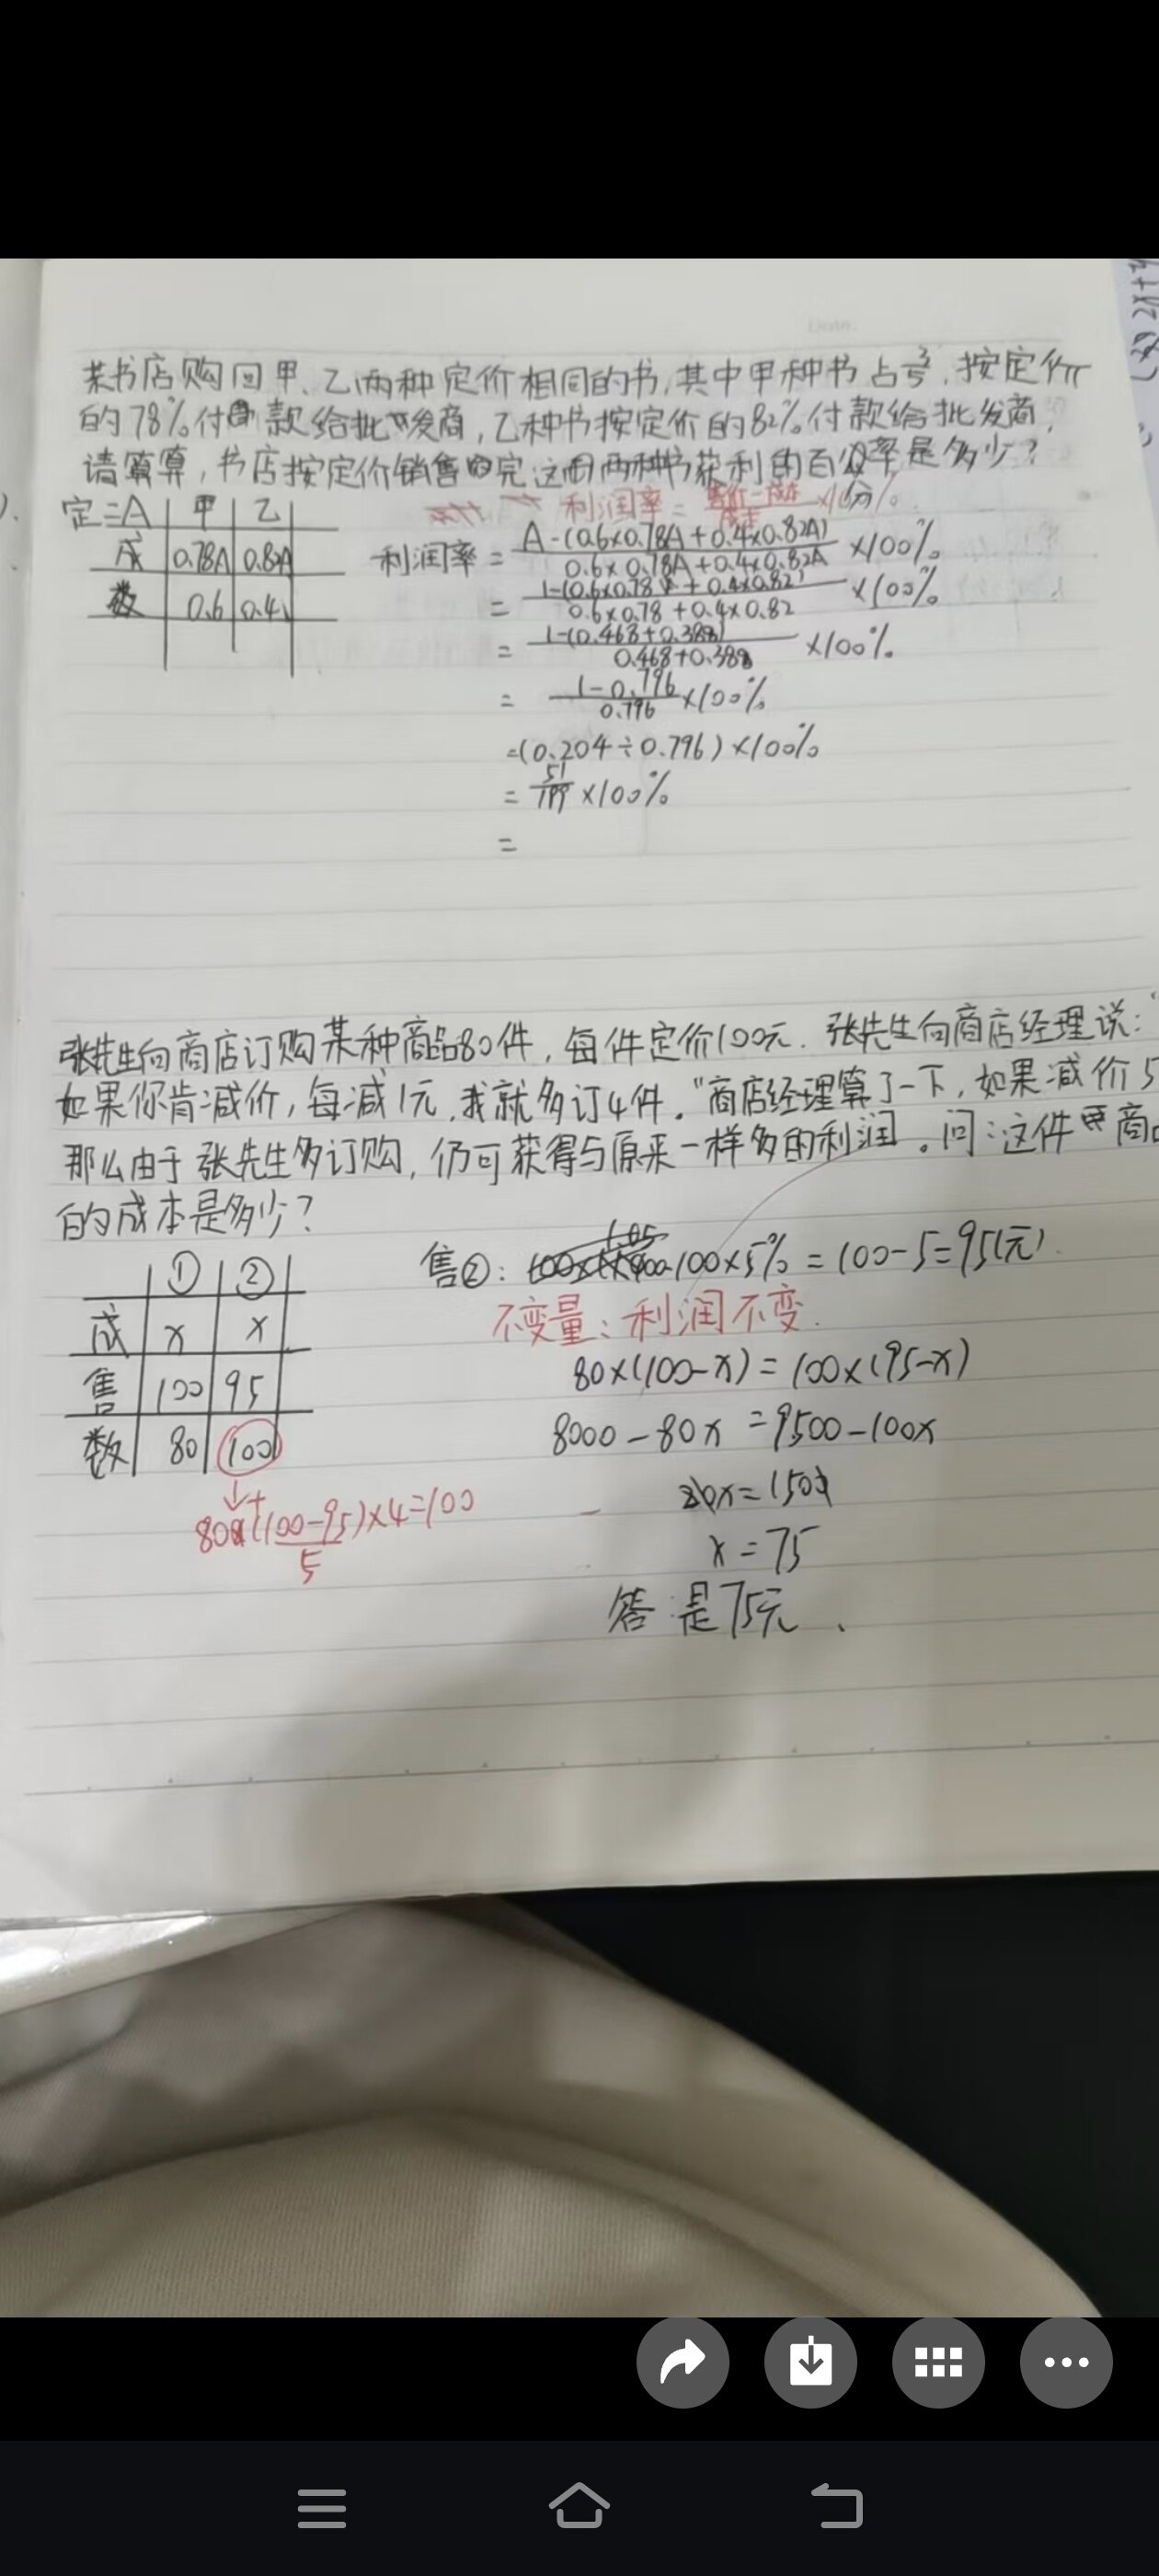 某书店购回甲、乙两种定价相同的书,其中甲种书占3/5,按定价
的78%付款给批发商,乙种书按定价的82%付款给批发商,
请算算,书店按定价销售完这两种书获利的百分率是多少?
利润率=售价-成本/成本×100%
定=A 甲 乙
成 0.78A 0.82A
数 0.6 0.4
利润率=A-(0.6×0.78A+0.4×0.82A)/0.6×0.78A+0.4×0.82A×100%
=1-(0.6×0.78+0.4×0.82)/0.6×0.78+0.4×0.82×100%
=1-(0.468+0.328)/0.468+0.328×100%
=1-0.796/0.796×100%
=(0.204÷0.796)×100%
=51/199×100%
=
张先生向商店订购某种商品80件,每件定价100元.张先生向商店经理说:“
如果你肯减价,每减1元,我就多订4件。”商店经理算了一下,如果减价5
那么由于张先生多订购,仍可获得与原来一样多的利润。问:这件商
的成本是多少?
① ②
成 x x
售 100 95
数 80 100
80+(100-95)×4=100
5
售②:100-100×5%=100-5=95(元).
不变量:利润不变.
80×(100-x)=100×(95-x)
8000-80x=9500-100x
20x=1500
x=75
答:是75元.